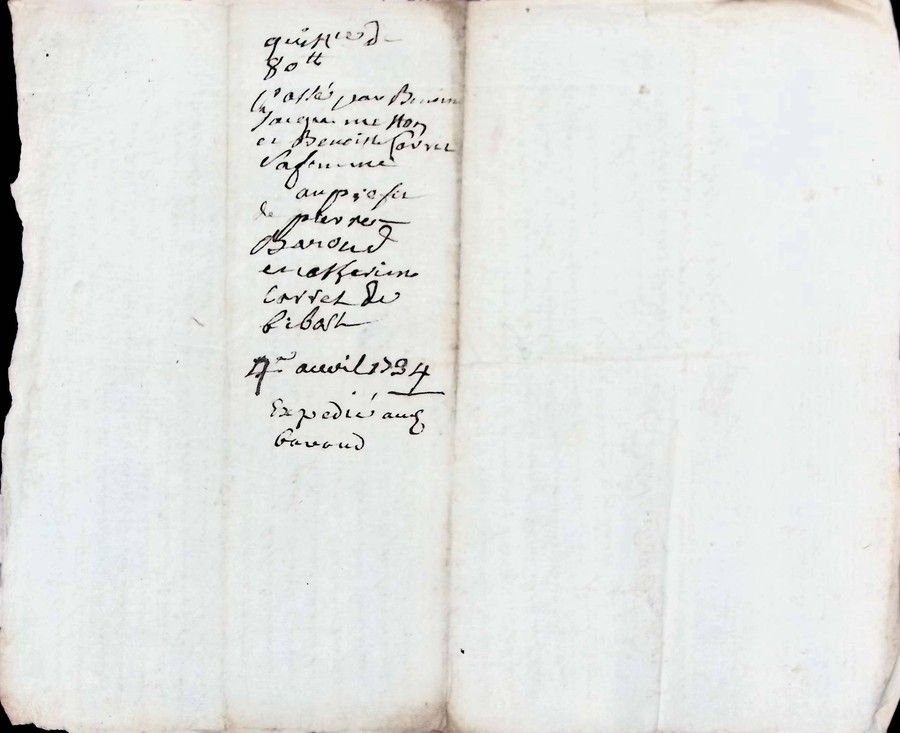 quittce de
80tt
passé par Benoit
Jacquemetton
et Benoiste Corret
Sa femme
au profit
de pierre
Baroud
et catherine
Corret de
bibost
4me auvril 1734
Expedié aux
baroud